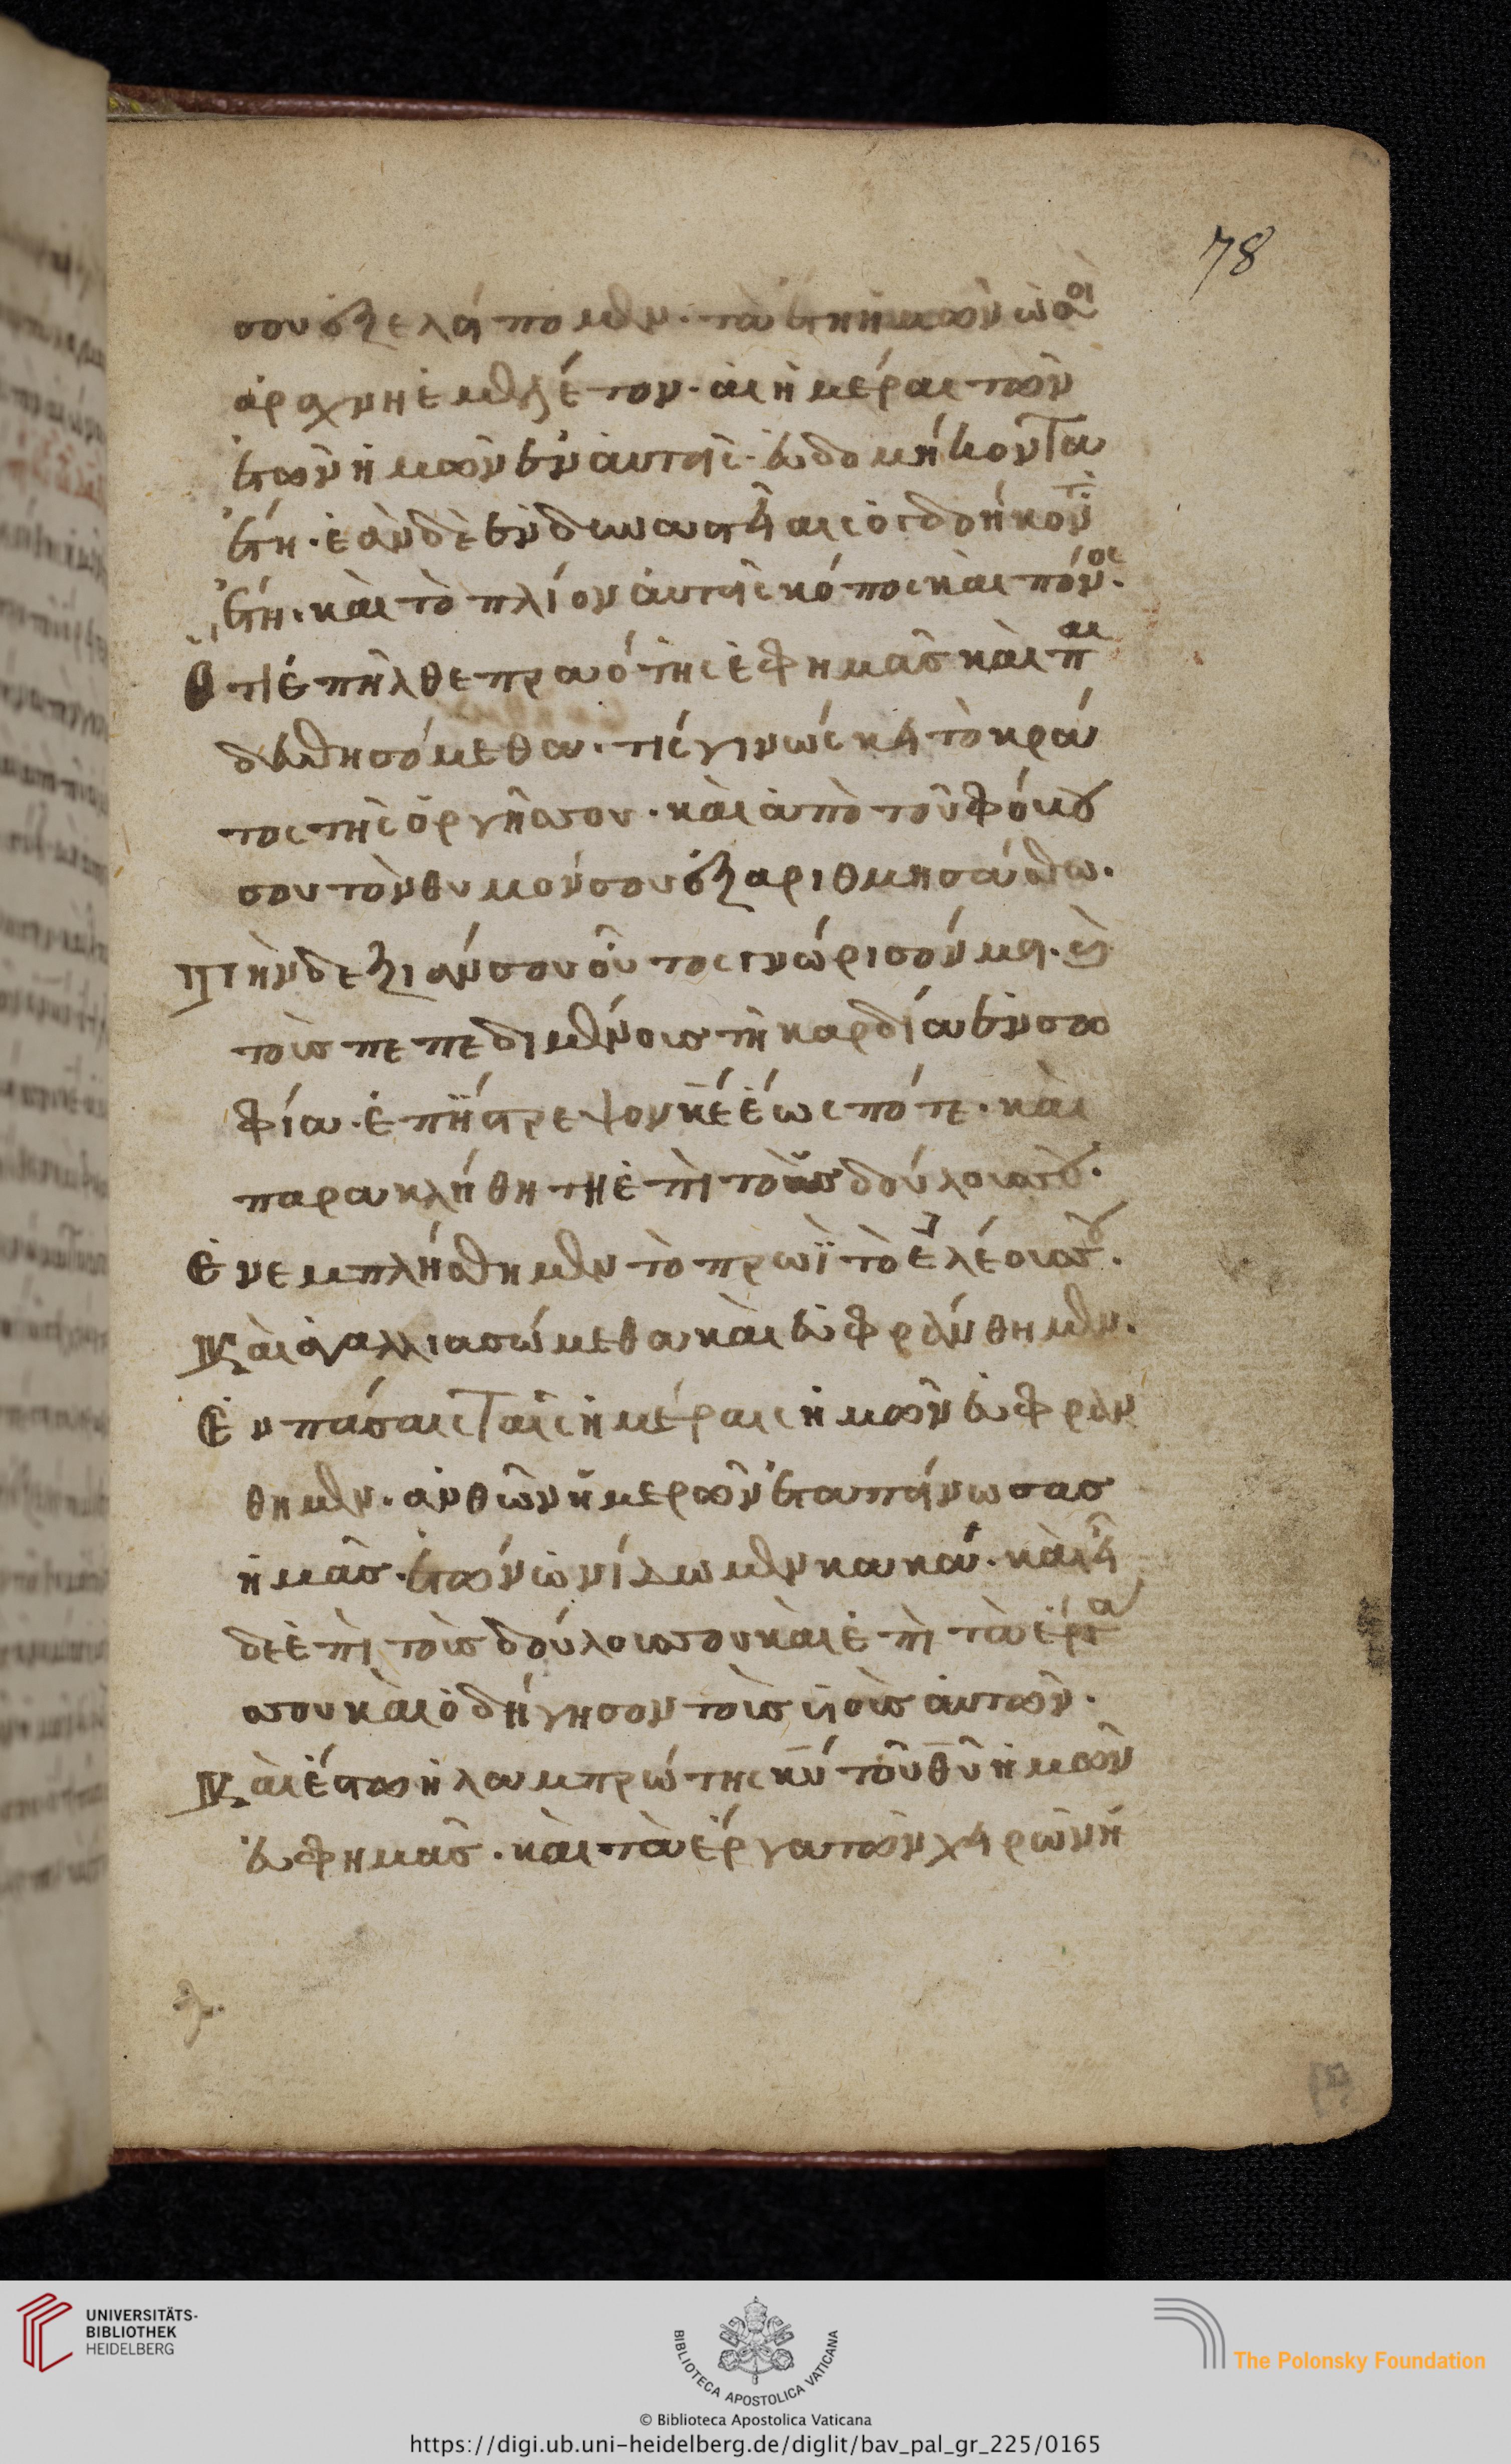 78
σου ἐξελείπομεν. τὰ ἔτη ἡμῶν ὡσοὶ
ἀράχνη ἐμελέτουν. αἱ ἡμέραι τῶν
ἐτῶν ἡμῶν ἐν αὐταῖς ἑβδομήκοντα
ἔτη. ἐὰν δὲ ἐν δυναστείαις ὀγδοήκοντα
ἔτη. καὶ τὸ πλίον αὐταῖς κόπος καὶ πόνος.
Ὅτι ἐπῆλθε πραότης ἐφ ημᾶς καὶ παι
δευθησόμεθα. τίς γινώσκει τὸ κρά
τος τῆς ὀργῆς σου. καὶ ἀπὸ τοῦ φόβου
σου τὸν θυμόν σου ἐξαριθμήσασθαι.
Τὴν δεξιάν σου οὕτος γνώρισόν μοι. καὶ
τοῖς πεπεδιμένοις τῇ καρδία ἐν σο
φία. ἐπίστρεψον κε ἕως πότε. καὶ
παρακλήθητη ἐπὶ τοῖς δούλοις σου.
Ἐνεμπλήσθημεν τὸ πρωῒ τὸ ἐλέους σου.
Καὶ ἀγαλλιασώμεθα καὶ εὐφράνθημεν.
Ἐν πάσαις ταῖς ἡμέραις ἡμῶν εὐφραν
θημεν. ἀνθ ὧν ἡμερῶν ἐταπείνωσας
ἡμᾶς. ἐτῶν ὧν ίδωμεν κακά. καὶ εἶ
δε ἐπὶ τοῖς δούλοις σου καὶ ἐπὶ τὰ έργα
σου καὶ ὁδήγησον τοῖς υἱοῖς αὐτῶν.
Καὶ έστω ἡ λαμπρώτης κυ τοῦ θυ ἡμῶν
ἐφ ημᾶς. καὶ τὰ έργα τῶν χειρῶν ἡ
UNIVERSITÄTS-
BIBLIOTHEK
HEIDELBERG
BIBLIOTECA APOSTOLICA VATICANA
The Polonsky Foundation
© Biblioteca Apostolica Vaticana
https://digi.ub.uni-heidelberg.de/diglit/bav_pal_gr_225/0165